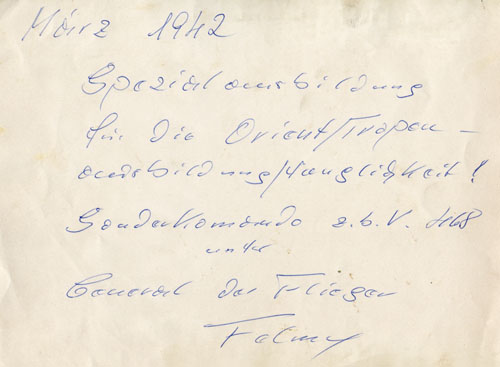 März 1942
Spezialausbildung
für die Orient/Tropen-
ausbildung/tauglichkeit!
Sonderkomando z.b.V. 468
unter
General der Flieger
Felmy